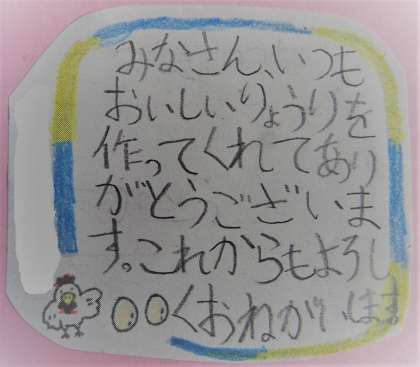 みなさん、いつも
おいしいりょうりを
作ってくれてあり
がとうございま
す。これからもよろし
くおねがいします